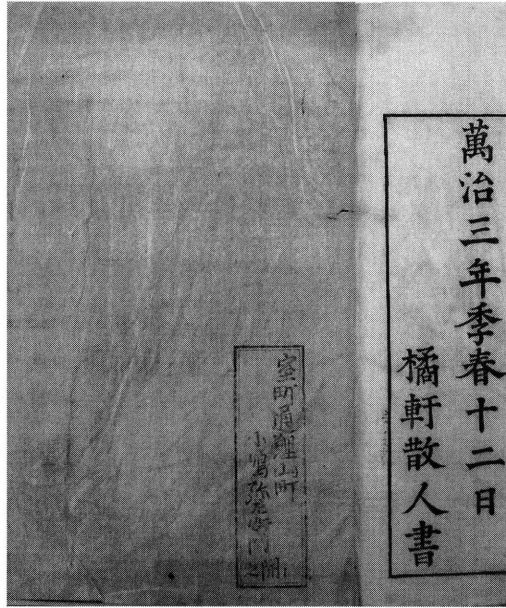 萬治三年季春十二日
橘軒散人書
室町通鯉山町
小嶋弥左衛門開之